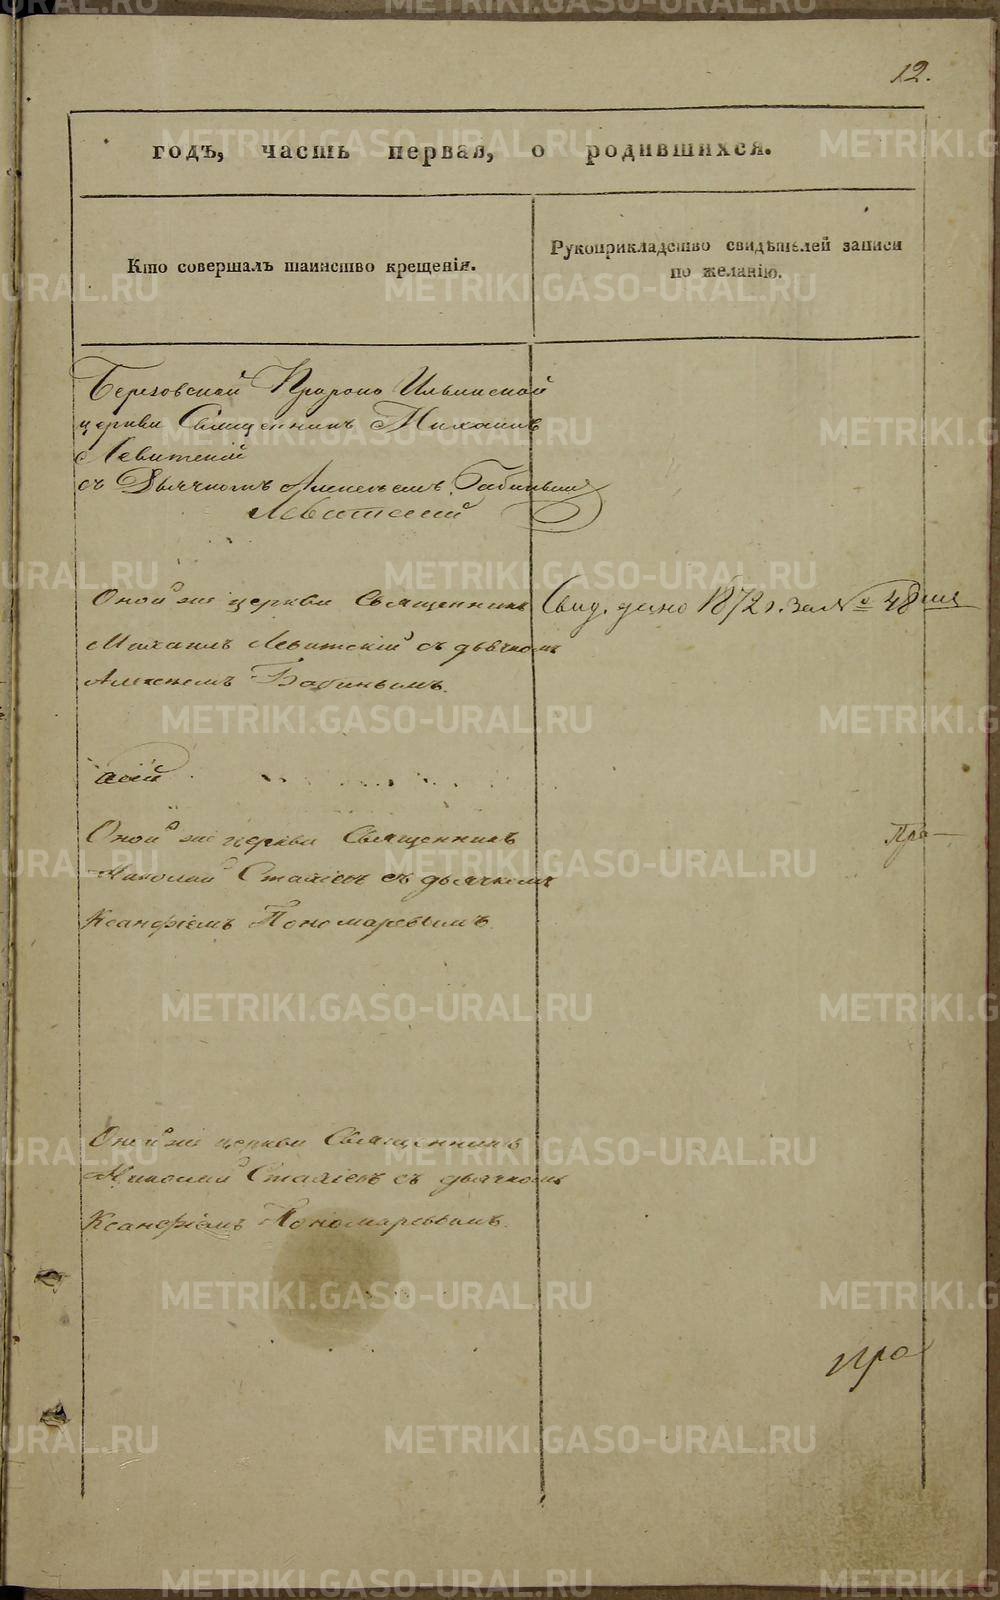 12.
годъ, часть первая, о родившихся.
Кто совершалъ таинство крещенія.
Рукоприкладство свидѣтелей записи
по желанію.
Березовской Пророко Ильинской
церкви Священникъ Михаилъ
Левитскій
съ Дьячкомъ Алексѣемъ Бабинымъ
Левитскій
Оной же церкви Священникъ
Свид. дано 1872 г. за № 48
Михаилъ Левитскій съ дьячкомъ
Алексѣемъ Бабинымъ.
Оной же церкви Священникъ
Николай Стахіевъ съ дьячкомъ
Ксанфіемъ Пономаревымъ.
Пра
Оной же церкви Священникъ
Николай Стахіевъ съ дьячкомъ
Ксанфіемъ Пономаревымъ.
пра
METRIKI.GASO-URAL.RU